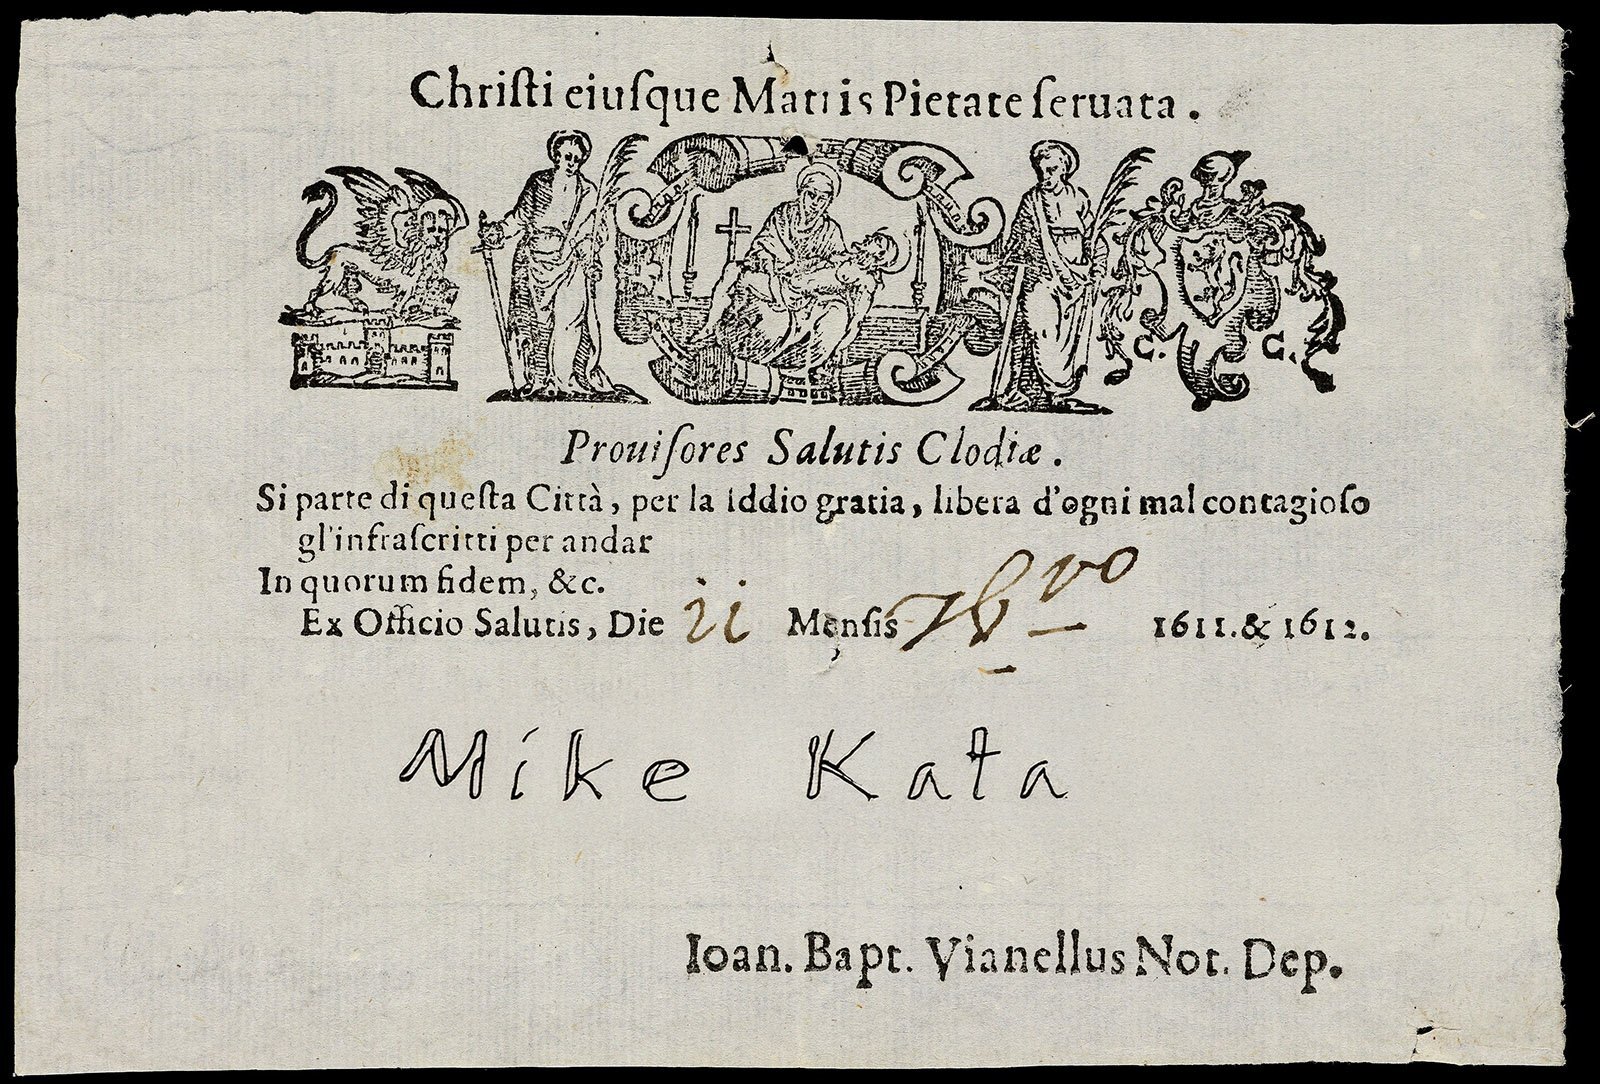 Chriſti eiuſque Matris Pietate ſeruata.
C. G.
Prouiſores Salutis Clodiæ.
Si parte di queſta Città, per la Iddio gratia, libera d'ogni mal contagioſo
gl'infraſcritti per andar
In quorum fidem, &c.
Ex Officio Salutis, Die ii Menſis 7bro 1611. & 1612.
Mike Kata
Ioan. Bapt. Vianellus Not. Dep.